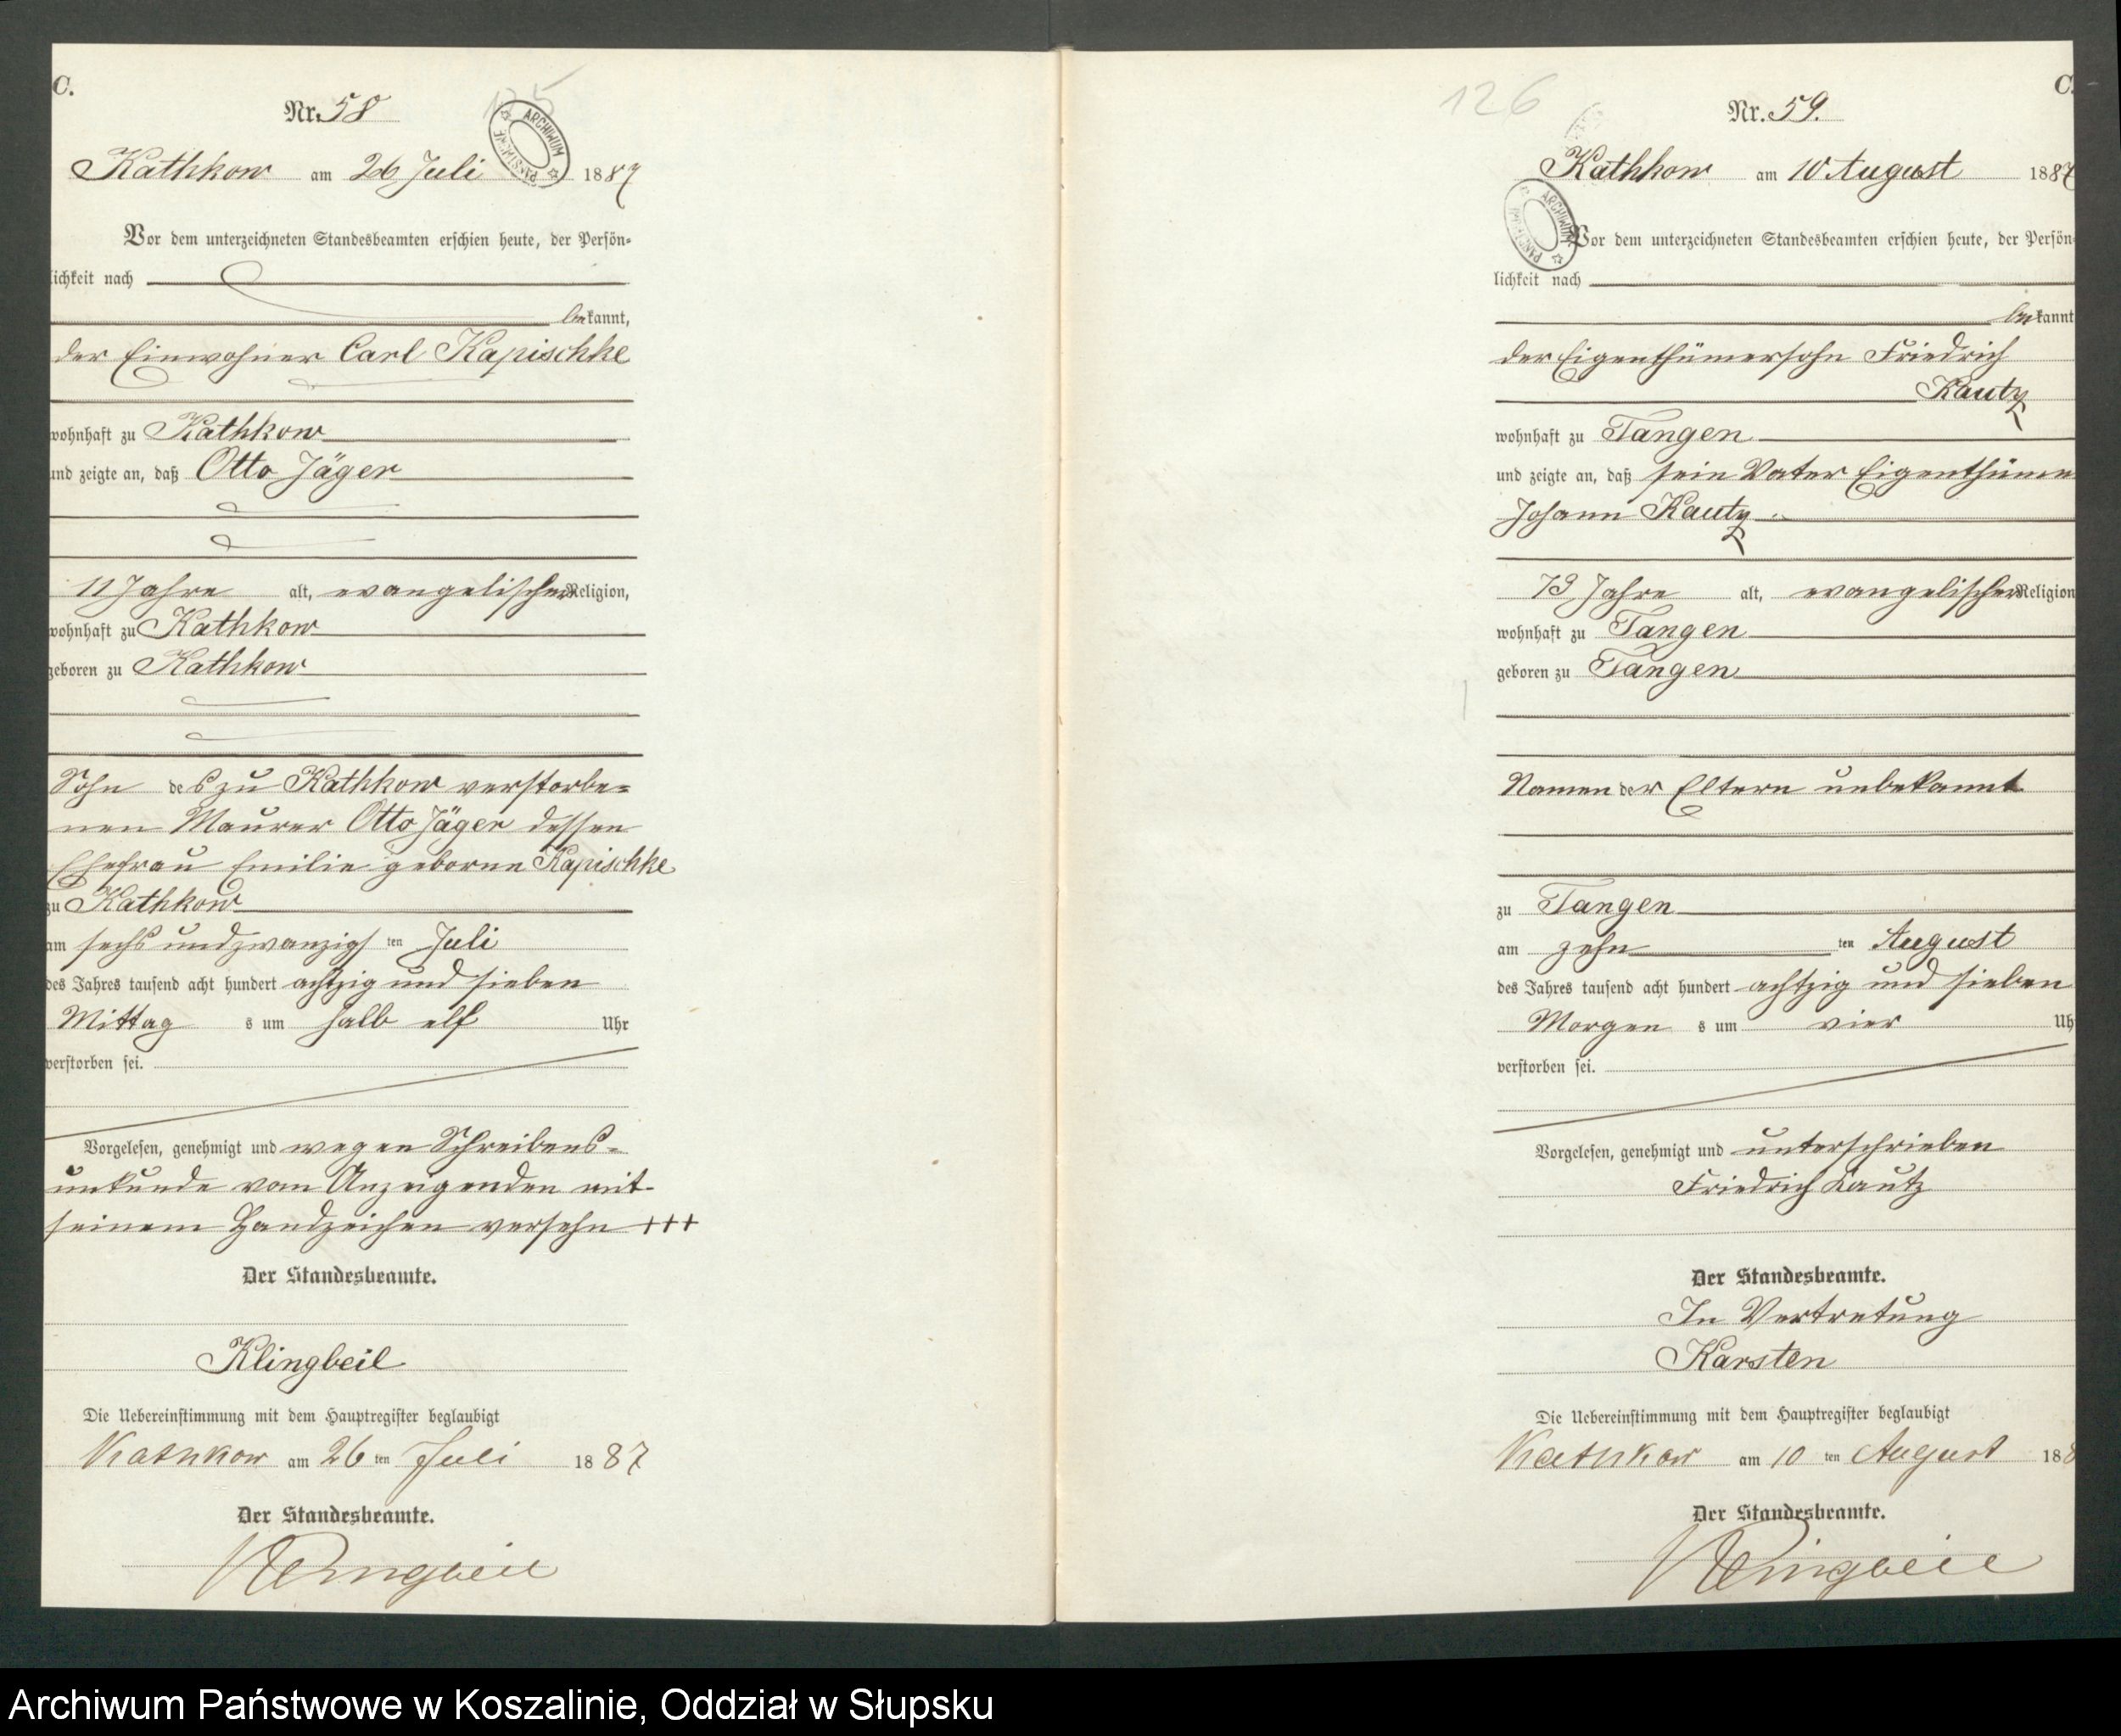 C.
Nr. 58
125
ARCHIWUM PAŃSTWOWE
Kathkow am 26 Juli 1887
Vor dem unterzeichneten Standesbeamten erschien heute, der Persön-
lichkeit nach
bekannt,
der Einwohner Carl Kapischke
wohnhaft zu Kathkow
und zeigte an, daß Otto Jäger
11 Jahre alt, evangelischer Religion,
wohnhaft zu Kathkow
geboren zu Kathkow
Sohn des zu Kathkow verstorbe-
nen Maurer Otto Jäger dessen
Ehefrau Emilie geborne Kapischke
zu Kathkow
am sechs und zwanzigsten Juli
des Jahres tausend acht hundert achtzig und sieben
Mittags um halb elf Uhr
verstorben sei.
Vorgelesen, genehmigt und wegen Schreibens-
unkunde vom Anzeigenden mit
seinem Handzeichen versehn +++
Der Standesbeamte.
Klingbeil
Die Uebereinstimmung mit dem Hauptregister beglaubigt
Kathkow am 26 ten Juli 1887
Der Standesbeamte.
Klingbeil
C.
126
Nr. 59.
ARCHIWUM PAŃSTWOWE
Kathkow am 10 August 1887
Vor dem unterzeichneten Standesbeamten erschien heute, der Persön
lichkeit nach
bekannt
der Eigenthümersohn Friedrich
Kautz
wohnhaft zu Tangen
und zeigte an, daß sein Vater Eigenthüme
Johann Kautz
73 Jahre alt, evangelischer Religion
wohnhaft zu Tangen
geboren zu Tangen
Namen der Eltern unbekannt
zu Tangen
am zehn ten August
des Jahres tausend acht hundert achtzig und sieben
Morgens um vier Uh
verstorben sei.
Vorgelesen, genehmigt und unterschrieben
Friedrich Kautz
Der Standesbeamte.
In Vertretung
Karsten
Die Uebereinstimmung mit dem Hauptregister beglaubigt
Kathkow am 10 ten August 188
Der Standesbeamte.
Klingbeil
Archiwum Państwowe w Koszalinie, Oddział w Słupsku